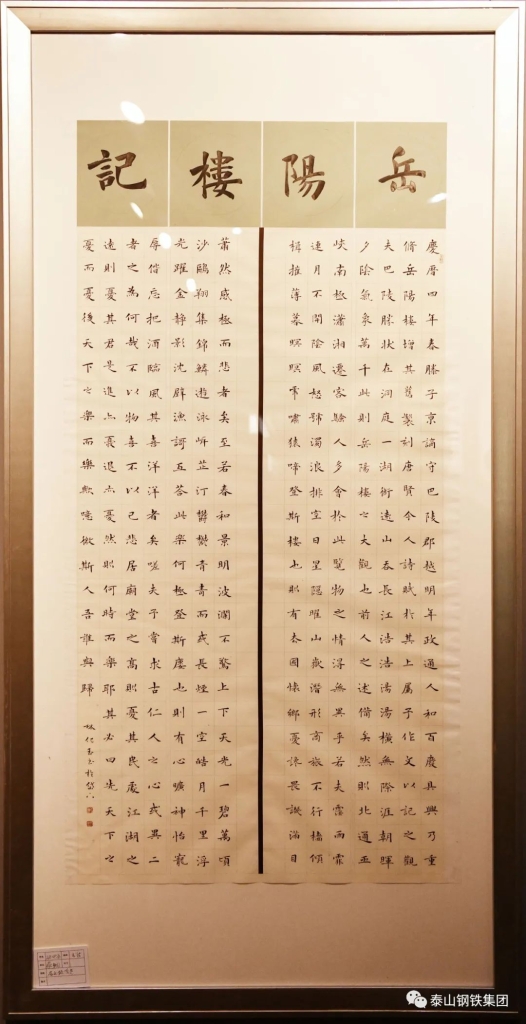 岳陽樓記
慶曆四年春滕子京謫守巴陵郡越明年政通人和百廢具興乃重
脩岳陽樓增其舊製刻唐賢今人詩賦於其上屬予作文以記之觀
夫巴陵勝狀在洞庭一湖銜遠山吞長江浩浩湯湯橫無際涯朝暉
夕陰氣象萬千此則岳陽樓之大觀也前人之述備矣然則北通巫
峽南極瀟湘遷客騷人多會於此覽物之情得無異乎若夫霪雨霏
連月不開陰風怒號濁浪排空日星隱曜山嶽潛形商旅不行檣傾
楫摧薄暮暝暝虎嘯猿啼登斯樓也則有去國懷鄉憂讒畏譏滿目
蕭然感極而悲者矣至若春和景明波瀾不驚上下天光一碧萬頃
沙鷗翔集錦鱗遊泳岍芷汀欝欝青青而或長煙一空皓月千里浮
光躍金靜影沈璧漁謌互答此樂何極登斯廔也則有心曠神怡寵
辱偕忘把酒臨風其喜洋洋者矣嗟夫予嘗求古仁人之心或異二
者之為何哉不以物喜不以己悲居廟堂之高則憂其民處江湖之
遠則憂其君是進亦憂退亦憂然則何時而樂耶其必曰先天下之
憂而憂後天下之樂而樂歟噫微斯人吾誰與歸
泰山钢铁集团